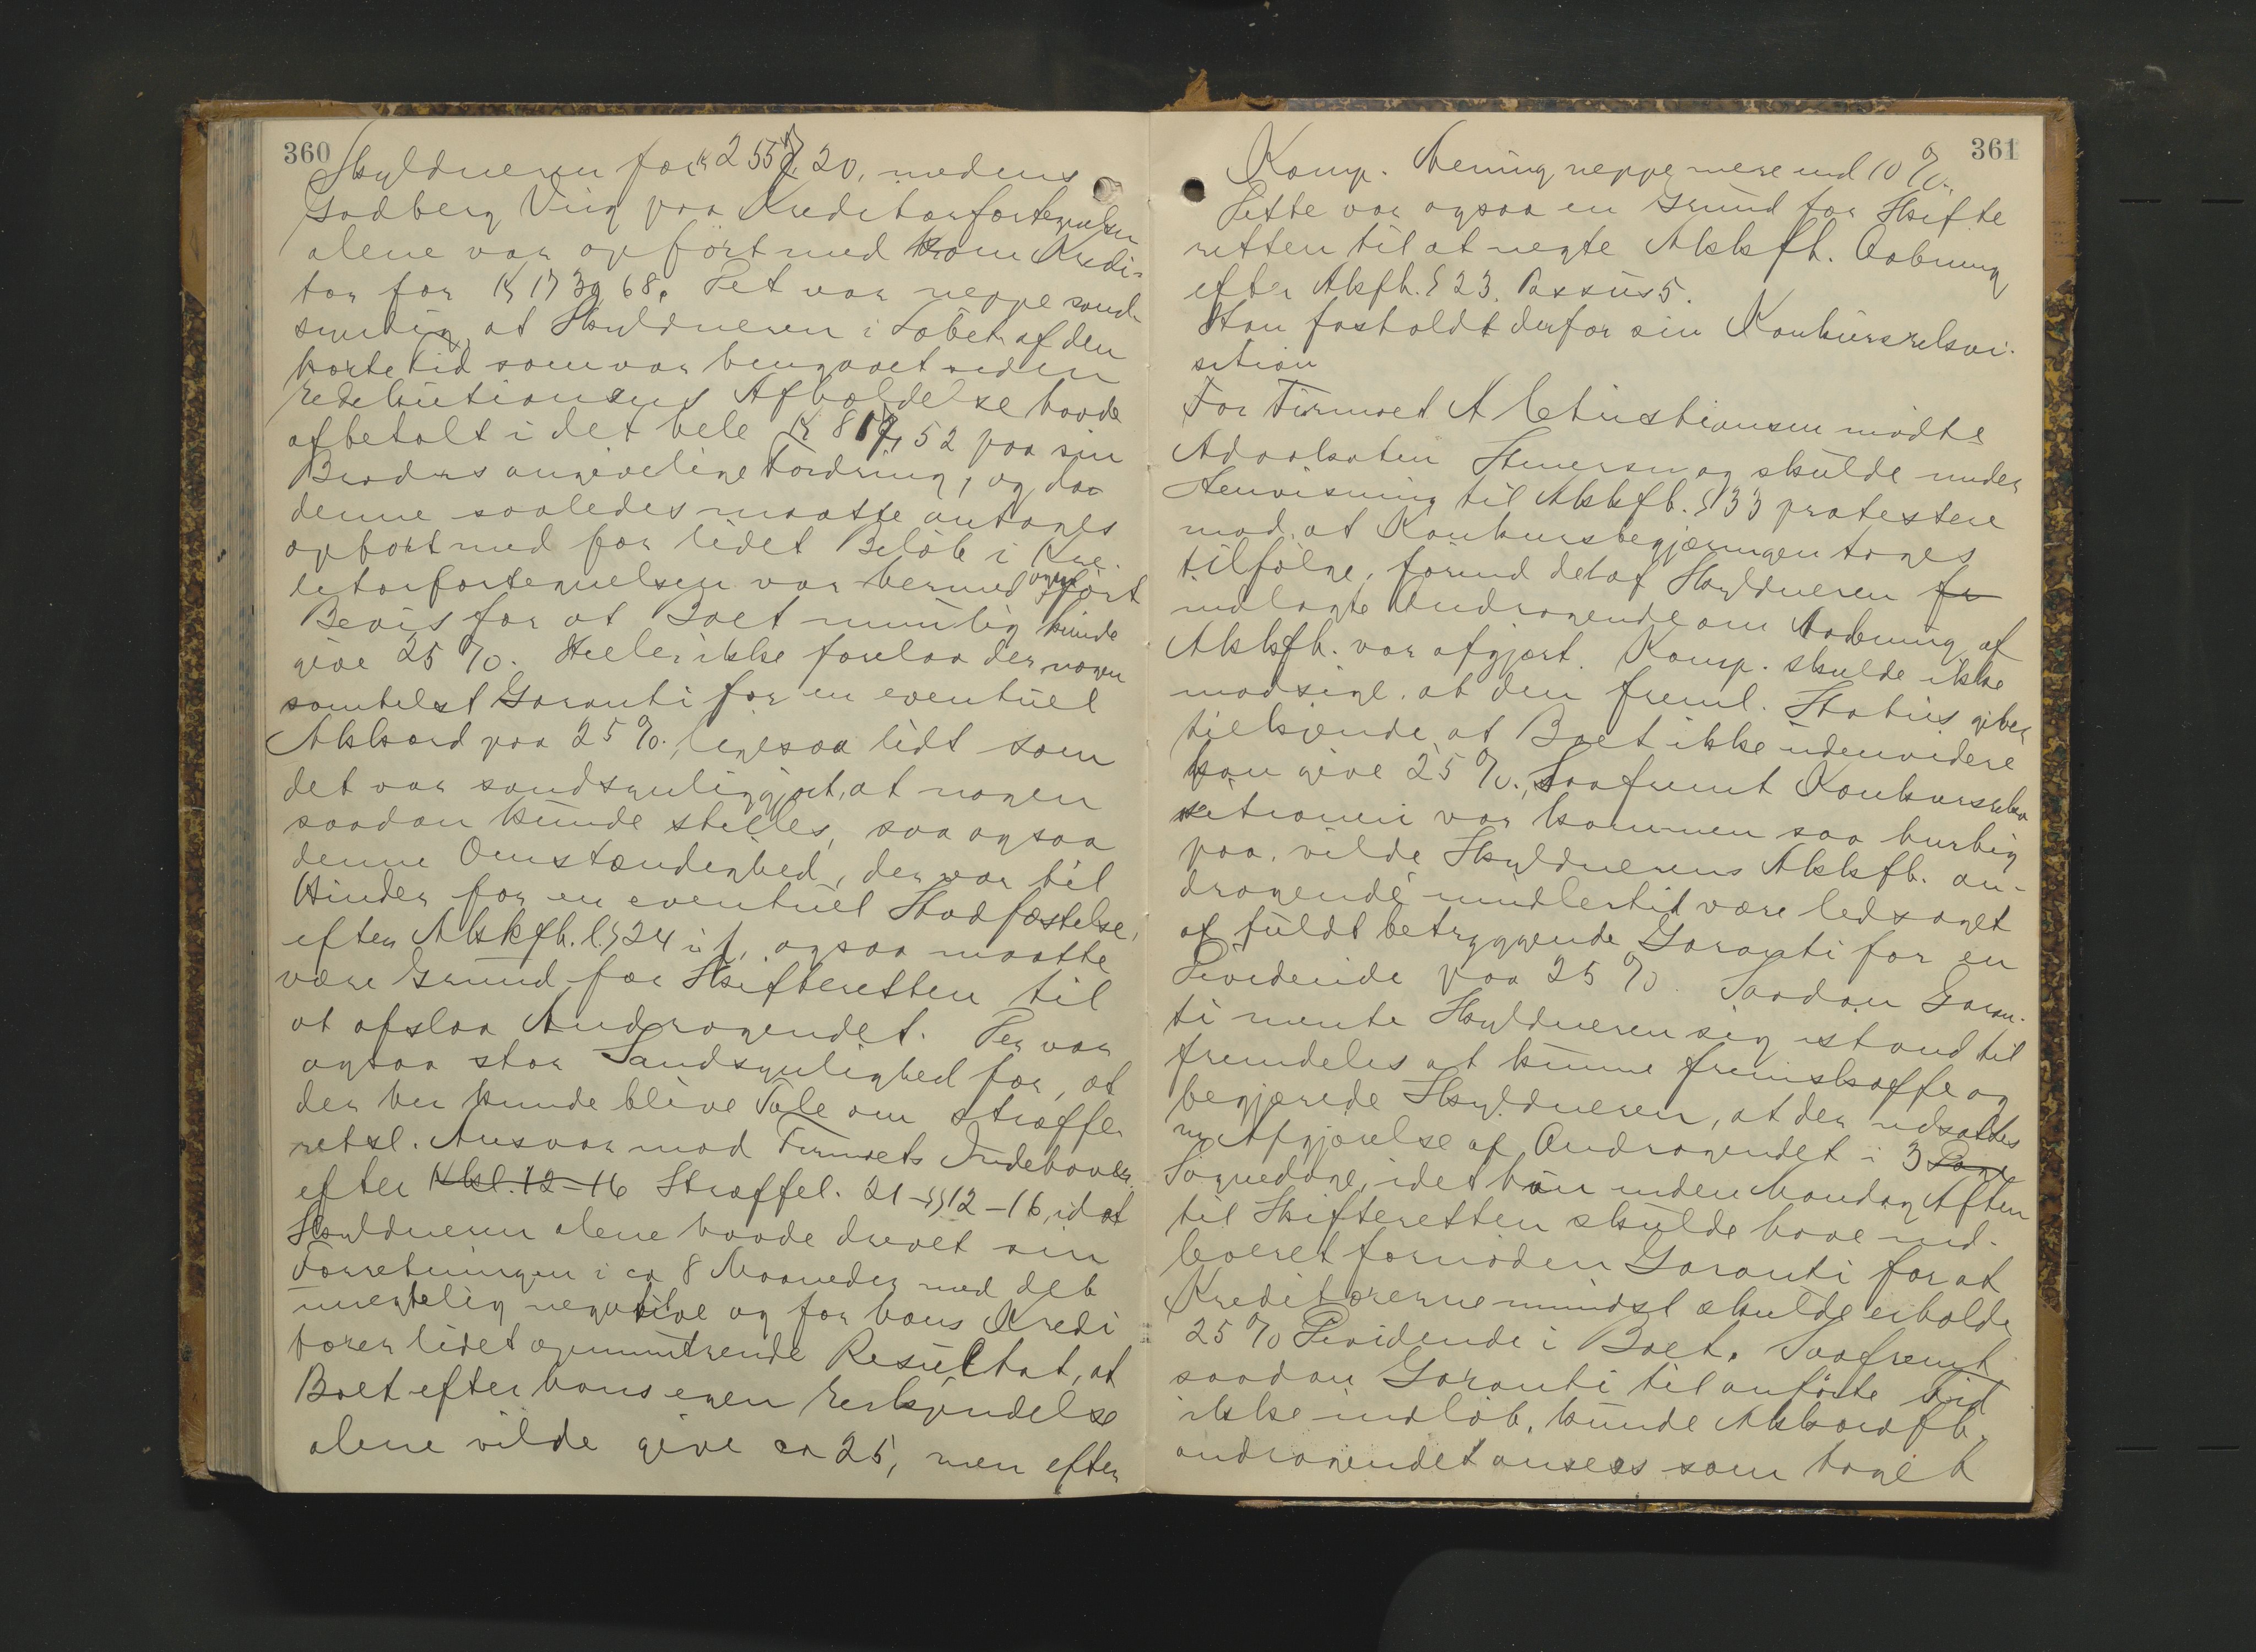 360
Skyldneren for Kr 2557,20, medens
Godberg Viig paa Kreditorfortegnelsen
alene var opført med som Kredi-
tor for Kr 1739,68. Det var neppe sand-
synlig, at Skyldneren i Løbet af den
korte tid som var bengaaet siden
Exekutionens Afholdelse havde
afbetalt i det hele Kr 817,52 paa sin
Broders angivelige Fordring, og da
denne saaledes maatte antages
opført med for lidet Beløb i Kre-
ditorfortegnelsen var hermed ogsaa ført
Bevis for at Boet umulig kunde
give 25 %. Heller ikke forelaa der nogen
somhelst Garanti for en eventuel
Akkord paa 25 %., ligesaa lidt som
det var sandsynliggjort, at nogen
saadan kunde stilles, saa ogsaa
denne Omstændighed, der var til
Hinder for en eventuel Stadfæstelse,
efter Akkfh.l. § 24 i f, ogsaa maatte
være Grund for Skifteretten til
at afslaa Andragendet. Der var
ogsaa stor Sandsynlighed for, at
der her kunde blive Tale om straffe-
retsl. Ansvar mod Firmaets Indehaver
efter Kkl. 12-16 Straffel. 21 - §§ 12-16, idet
Skyldneren alene havde drevet sin
Forretningen i ca 8 Maaneder med det
unegtelig negative og for hans Kredi
torer lidet opmuntrende Resultat, at
Boet efter hans egen Erkjendelse
alene vilde give ca 25, men efter
361
Komp. Mening neppe mere end 10 %.
Dette var ogsaa en Grund for Skifte
retten til at negte Akkfh. Aabning
efter Akfh. § 23. Passus 5.
Han fastholdt derfor sin Konkursrekvi-
sition
For Firmaet A Christiansen mødte
Advokaten Steuersen og skulde under
Henvisning til Akkfh. § 33 protestere
mod, at Konkursbegjæringen toges
tilfølge, førend det af Skyldneren fr
indlagte Andragende om Aabning af
Akkfh. var afgjort. Komp. skulde ikke
modsige, at den freml. Status giver
tilkjende, at Boet ikke udenvidere
kan give 25 %., Saafremt Konkursrekvi
sitionen var kommen saa hurtig
paa, vilde Skyldnerens Akkfh. an-
dragende imidlertid være ledsaget
af fuldt betryggende Garanti for en
Dividende paa 25 %. Saadan Garan-
ti mente Skyldneren sig istand til
fremdeles at kunne fremskaffe og
begjærede Skyldneren, at der udsattes
m Afgjørelse af Andragendet i 3 Dage
Søgnedage, idet han inden Mandag Aften
til Skifteretten skulde have ind-
leveret fornøden Garanti for at
Kreditorerne mindst skulde erholde
25 % Dividende i Boet. Saafremt
saadan Garanti til anførte Tid
ikke indløb, kunde Akkordfh.
andragendet ansees som taget